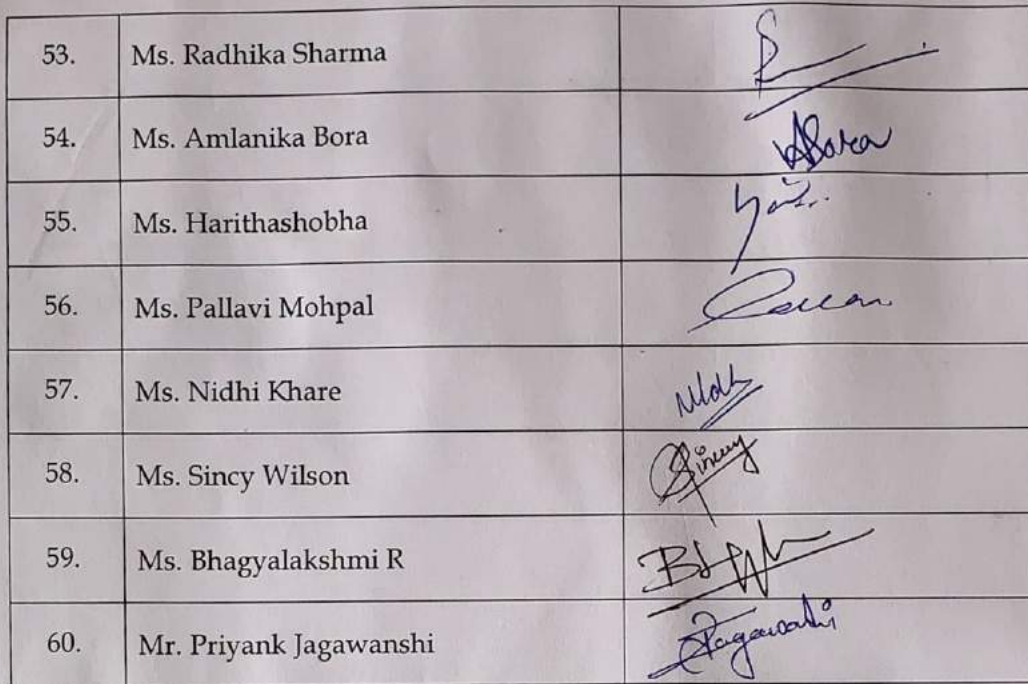 53. Ms. Radhika Sharma
54. Ms. Amlanika Bora ABora
55. Ms. Harithashobha
56. Ms. Pallavi Mohpal
57. Ms. Nidhi Khare Nidhi
58. Ms. Sincy Wilson Sincy
59. Ms. Bhagyalakshmi R
60. Mr. Priyank Jagawanshi